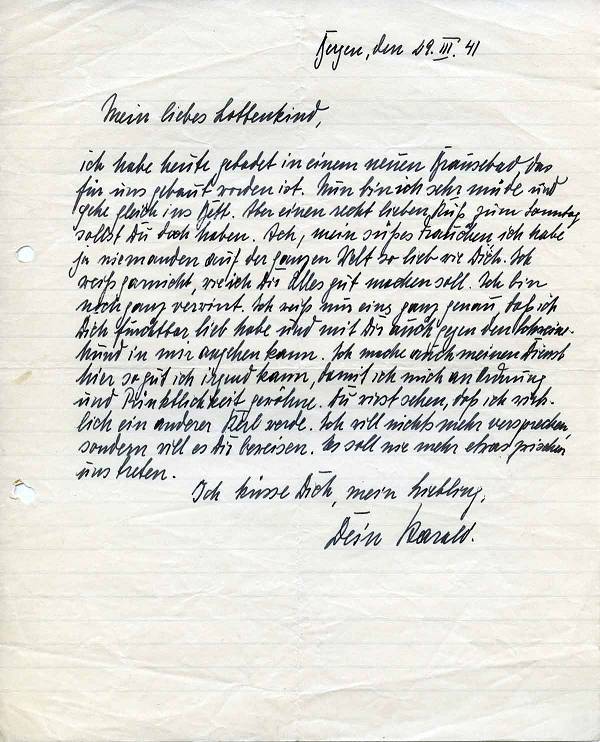 Bergen, den 29. III. 41
Mein liebes Lottenkind,
ich habe heute gebadet in einem neuen Brausebad, das
für uns gebaut worden ist. Nun bin ich sehr müde und
gehe gleich ins Bett. Aber einen recht lieben Kuß zum Sonntag
sollst Du doch haben. Ach, mein süßes Frauchen, ich habe
ja niemanden auf der ganzen Welt so lieb wie Dich. Ich
weiß garnicht, wie ich Dir Alles gut machen soll. Ich bin
noch ganz verwirrt. Ich weiß nur eins ganz genau, daß ich
Dich furchtbar lieb habe und mit Dir auch gegen den Schweine-
hund in mir angehen kann. Ich mache auch meinen Dienst
hier so gut ich irgend kann, damit ich mich an Ordnung
und Pünktlichkeit gewöhne. Du wirst sehen, daß ich wirk-
lich ein anderer Kerl werde. Ich will nichts mehr versprechen
sondern will es Dir beweisen. Es soll nie mehr etwas zwischen
uns treten.
Ich küsse Dich, mein Liebling.
Dein Harald.